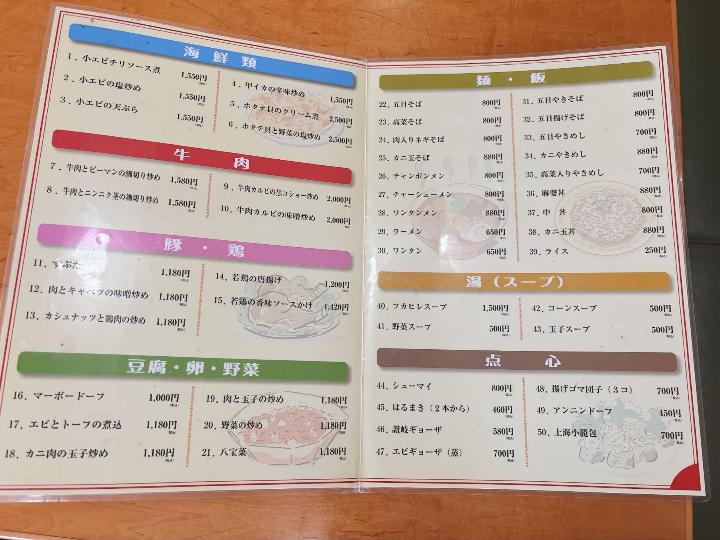 海鮮類
1．小エビチリソース煮 1,550円
2．小エビの塩炒め 1,550円
3．小エビの天ぷら 1,550円
4．甲イカの辛味炒め 1,350円
5．ホタテ貝のクリーム煮 2,500円
6．ホタテ貝と野菜の塩炒め 2,500円
牛肉
7．牛肉とピーマンの細切り炒め 1,580円
8．牛肉とニンニク茎の細切り炒め 1,580円
9．牛肉カルビの黒コショー炒め 2,000円
10．牛肉カルビの味噌炒め 2,000円
豚・鶏
11．すぶた 1,180円
12．肉とキャベツの味噌炒め 1,180円
13．カシュナッツと鶏肉の炒め 1,180円
14．若鶏の唐揚げ 1,200円
15．若鶏の香味ソースかけ 1,420円
豆腐・卵・野菜
16．マーボードーフ 1,000円
17．エビとトーフの煮込 1,180円
18．カニ肉の玉子炒め 1,180円
19．肉と玉子の炒め 1,180円
20．野菜の炒め 1,180円
21．八宝菜 1,180円
麺・飯
22．五目そば 800円
23．高菜そば 800円
24．肉入りネギそば 800円
25．カニ玉そば 880円
26．チャンポンメン 800円
27．チャーシューメン 800円
28．ワンタンメン 880円
29．ラーメン 650円
30．ワンタン 650円
31．五目やきそば 800円
32．五目揚げそば 800円
33．五目やきめし 700円
34．カニやきめし 880円
35．高菜入りやきめし 700円
36．麻婆丼 880円
37．中 丼 800円
38．カニ玉丼 880円
39．ライス 250円
湯（スープ）
40．フカヒレスープ 1,500円
41．野菜スープ 500円
42．コーンスープ 500円
43．玉子スープ 500円
点 心
44．シューマイ 800円
45．はるまき（2本から） 460円
46．讃岐ギョーザ 580円
47．エビギョーザ（蒸） 700円
48．揚げゴマ団子（3コ） 700円
49．アンニンドーフ 450円
50．上海小籠包 700円